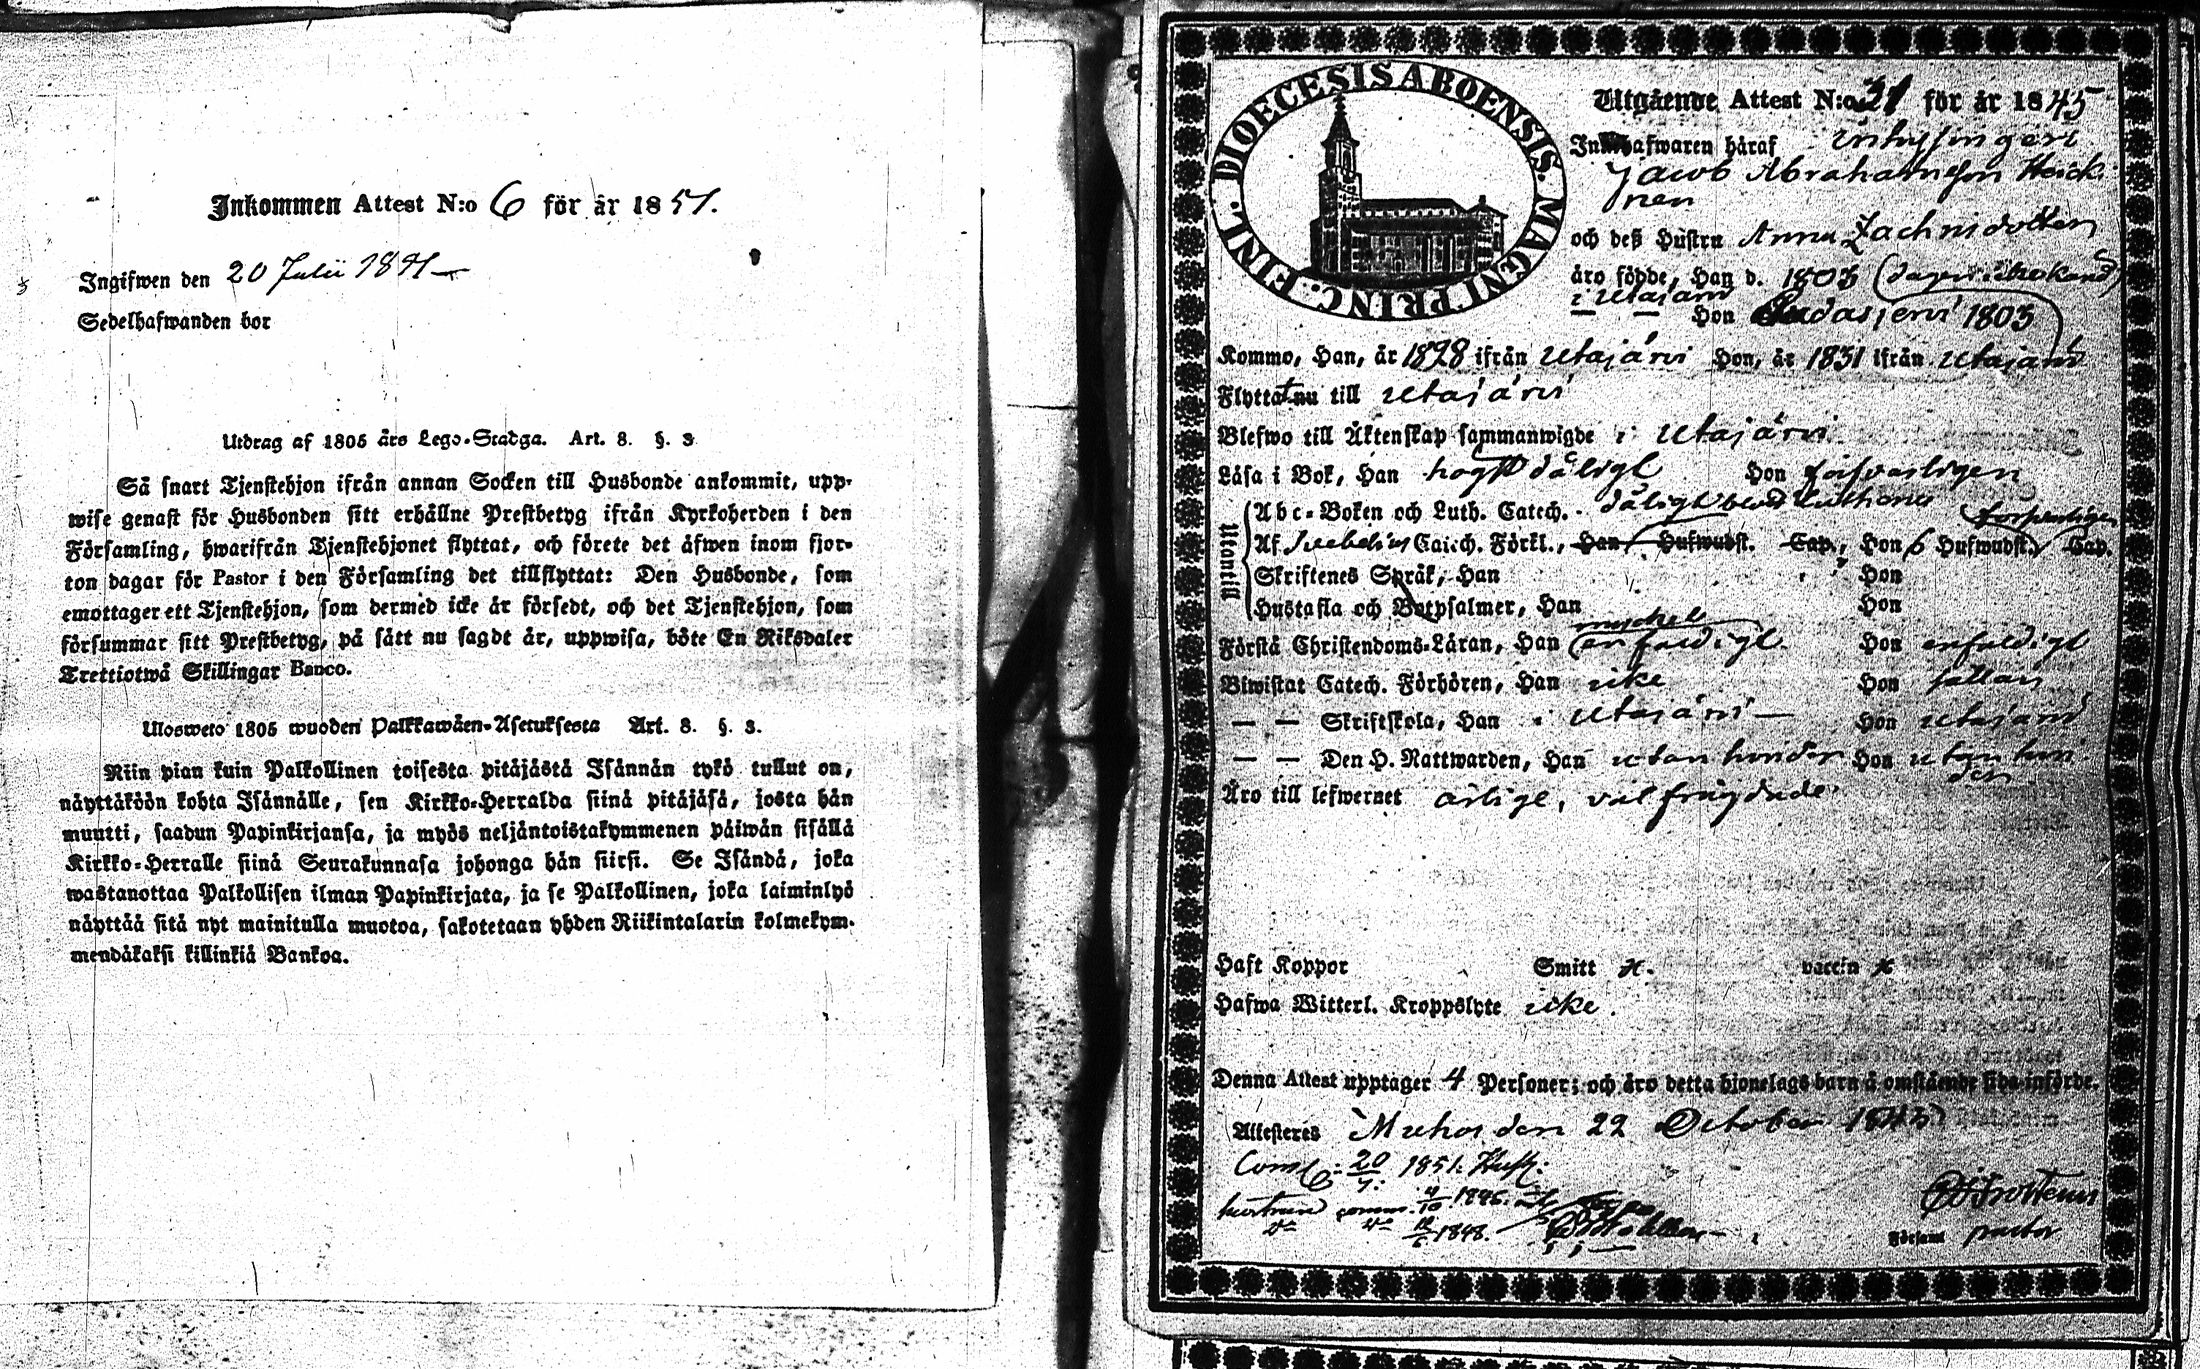 Inkommen Attest N:o 6 för år 1851.
Ingifwen den 20 Julii 1851
Sedelhafwanden bor
Utdrag af 1805 års Lego-Stadga. Art. 8. §. 3
Så snart Tjenstehjon ifrån annan Socken till Husbonde ankommit, upp-
wise genast för Husbonden sitt erhållne Prestbetyg ifrån Kyrkoherden i den
Församling, hwarifrån Tjenstehjonet flyttat, och förete det äfwen inom fjor-
ton dagar för Pastor i den Församling det tillflyttat: Den Husbonde, som
emottager ett Tjenstehjon, som dermed icke är försedt, och det Tjenstehjon, som
försummar sitt Prestbetyg, på sätt nu sagdt är, uppwisa, böte En Riksdaler
Trettiotwå Skillingar Banco.
Ulosweto 1805 wuoden Palkkawäen-Asetuksesta Art. 8. §. 3.
Niin pian kuin Palkollinen toisesta pitäjästä Isännän tykö tullut on,
näyttäköön kohta Isännälle, sen Kirkko-Herralda siinä pitäjäsä, josta hän
muutti, saadun Papinkirjansa, ja myös neljäntoistakymmenen päiwän sisällä
Kirkko-Herralle siinä Seurakunnasa johonga hän siirsi. Se Isändä, joka
wastanottaa Palkollisen ilman Papinkirjata, ja se Palkollinen, joka laiminlyö
näyttää sitä nyt mainitulla muotoa, sakotetaan yhden Riikintalarin kolmekym-
mendäkaksi killinkiä Bankoa.
DIOECESIS ABOENSIS. MAGNI PRINC. FINL.
Utgående Attest N:o 31 för år 1845
Innehafwaren häraf inhysingen
Jacob Abrahamsson Heick-
nen
och deß Hustru Anna Zachrisdotter
äro födde, Han d. 1803 (dagen obekand)
i Utajärvi
— — Hon Pudasjervi 1803
Kommo, Han, år 1828 ifrån Utajärvi Hon, år 1831 ifrån Utajärvi
Flyttat nu till Utajärvi
Blefwo till Äktenskap sammanwigde i Utajärvi
Läsa i Bok, Han högst dåligt Hon försvarligen
Utantill
Abc-Boken och Luth. Catech. dåligt
Af Svebelii Catech. Förkl., Han Hufwudst. Cap., Hon 6 Hufwudst. Cap.
Skriftenes Språk, Han Hon
Hustafla och Botpsalmer, Han Hon
mycket
Förstå Christendoms-Läran, Han enfaldigt Hon enfaldigt
Biwistat Catech. Förhören, Han icke Hon sällan
— — Skriftskola, Han i Utajärvi — Hon Utajärvi
— — Den H. Nattwarden, Han utan hinder Hon utan hin
der
Äro till lefwernet ärlige, välfrägdade
Haft Koppor Smitt vaccin
Hafwa Witterl. Kroppslyte icke.
Denna Attest upptager 4 Personer; och äro detta hjonelags barn å omstående sida införde.
Attesteres Muhos den 22 October 1845
20/7 1851.
4/10 1846.
12/6 1848.
Församl pastor